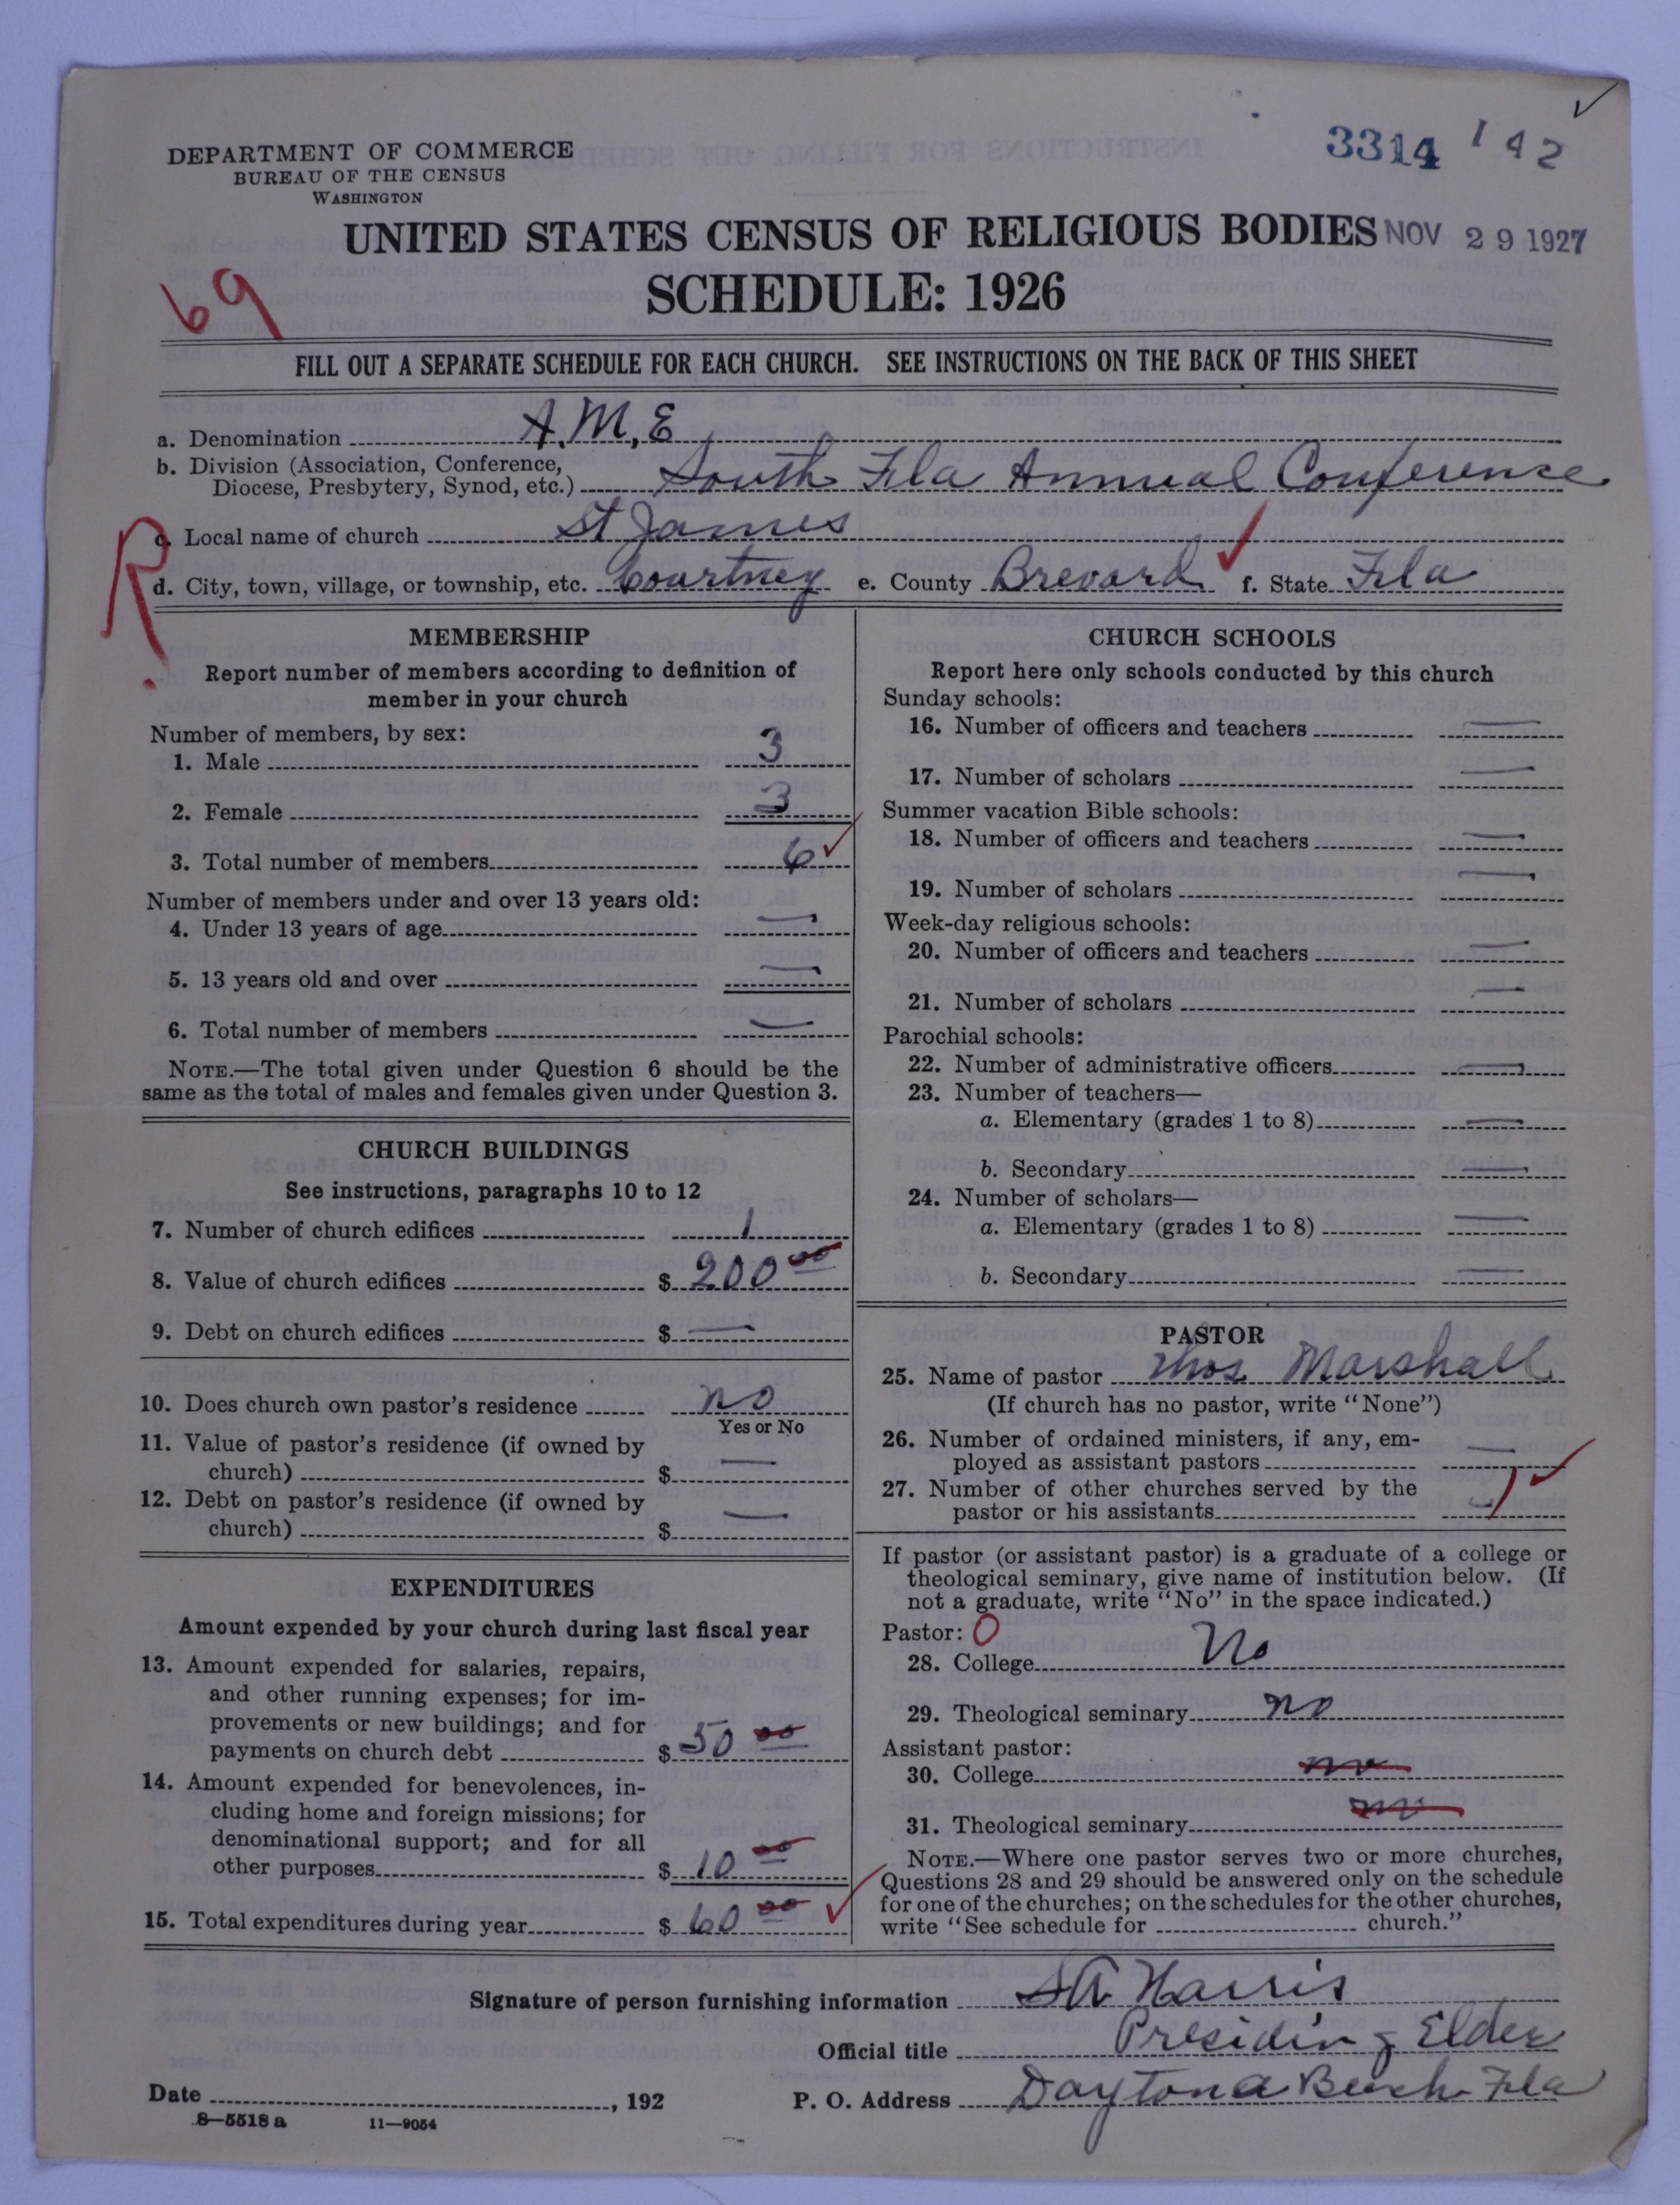 DEPARTMENT OF COMMERCE
BUREAU OF THE CENSUS
WASHINGTON
3314 142
UNITED STATES CENSUS OF RELIGIOUS BODIES NOV 29 1927
SCHEDULE: 1926
69
FILL OUT A SEPARATE SCHEDULE FOR EACH CHURCH. SEE INSTRUCTIONS ON THE BACK OF THIS SHEET
a. Denomination A.M.E
b. Division (Association, Conference,
Diocese, Presbytery, Synod, etc.) South Fla Annual Conference
R
c. Local name of church St James
d. City, town, village, or township, etc. Courtney e. County Brevard f. State Fla
MEMBERSHIP
Report number of members according to definition of
member in your church
Number of members, by sex:
1. Male 3
2. Female 3
3. Total number of members 6
Number of members under and over 13 years old:
4. Under 13 years of age —
5. 13 years old and over —
6. Total number of members —
NOTE.—The total given under Question 6 should be the
same as the total of males and females given under Question 3.
CHURCH BUILDINGS
See instructions, paragraphs 10 to 12
7. Number of church edifices 1
8. Value of church edifices $ 200 00
9. Debt on church edifices $ —
10. Does church own pastor's residence no
Yes or No
11. Value of pastor's residence (if owned by
church) $ —
12. Debt on pastor's residence (if owned by
church) $ —
EXPENDITURES
Amount expended by your church during last fiscal year
13. Amount expended for salaries, repairs,
and other running expenses; for im-
provements or new buildings; and for
payments on church debt $ 50 00
14. Amount expended for benevolences, in-
cluding home and foreign missions; for
denominational support; and for all
other purposes $ 10 00
15. Total expenditures during year $ 60 00
CHURCH SCHOOLS
Report here only schools conducted by this church
Sunday schools:
16. Number of officers and teachers —
17. Number of scholars —
Summer vacation Bible schools:
18. Number of officers and teachers —
19. Number of scholars —
Week-day religious schools:
20. Number of officers and teachers —
21. Number of scholars —
Parochial schools:
22. Number of administrative officers —
23. Number of teachers—
a. Elementary (grades 1 to 8) —
b. Secondary —
24. Number of scholars—
a. Elementary (grades 1 to 8) —
b. Secondary —
PASTOR
25. Name of pastor Thos Marshall
(If church has no pastor, write "None")
26. Number of ordained ministers, if any, em-
ployed as assistant pastors —
27. Number of other churches served by the
pastor or his assistants 1
If pastor (or assistant pastor) is a graduate of a college or
theological seminary, give name of institution below. (If
not a graduate, write "No" in the space indicated.)
Pastor: 0
28. College No
29. Theological seminary no
Assistant pastor:
30. College no
31. Theological seminary no
NOTE.—Where one pastor serves two or more churches,
Questions 28 and 29 should be answered only on the schedule
for one of the churches; on the schedules for the other churches,
write "See schedule for church."
Signature of person furnishing information SA Harris
Official title Presiding Elder
Date , 192 P. O. Address Daytona Beach Fla
8—5518 a 11—9054